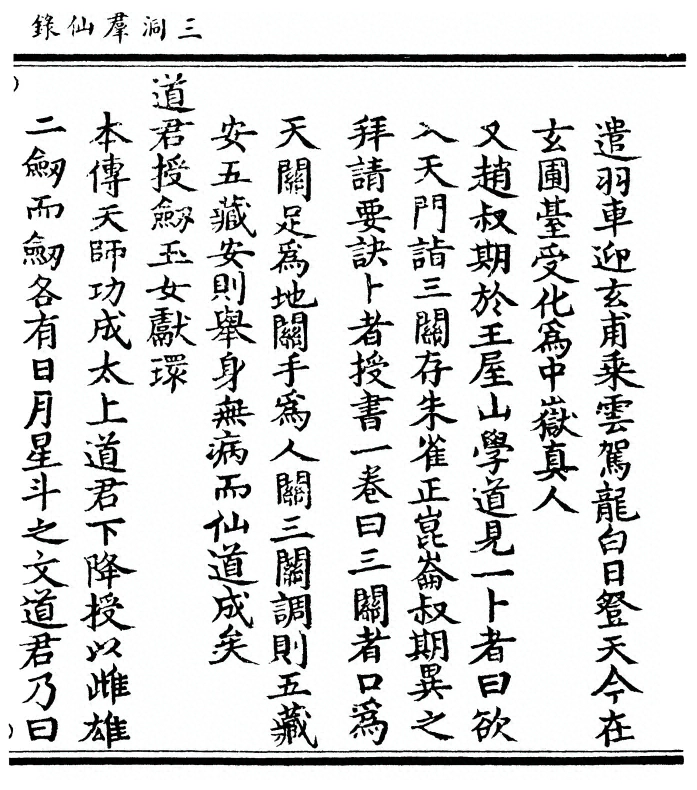 三洞羣仙錄
遣羽車迎玄甫乘雲駕龍白日登天今在
玄圃臺受化爲中嶽真人
又趙叔期於王屋山學道見一卜者曰欲
入天門詣三關存朱雀正崑崙叔期異之
拜請要訣卜者授書一卷曰三關者口爲
天關足爲地關手爲人關三關調則五藏
安五藏安則舉身無病而仙道成矣
道君授劒玉女獻環
本傳天師功成太上道君下降授以雌雄
二劒而劒各有日月星斗之文道君乃曰